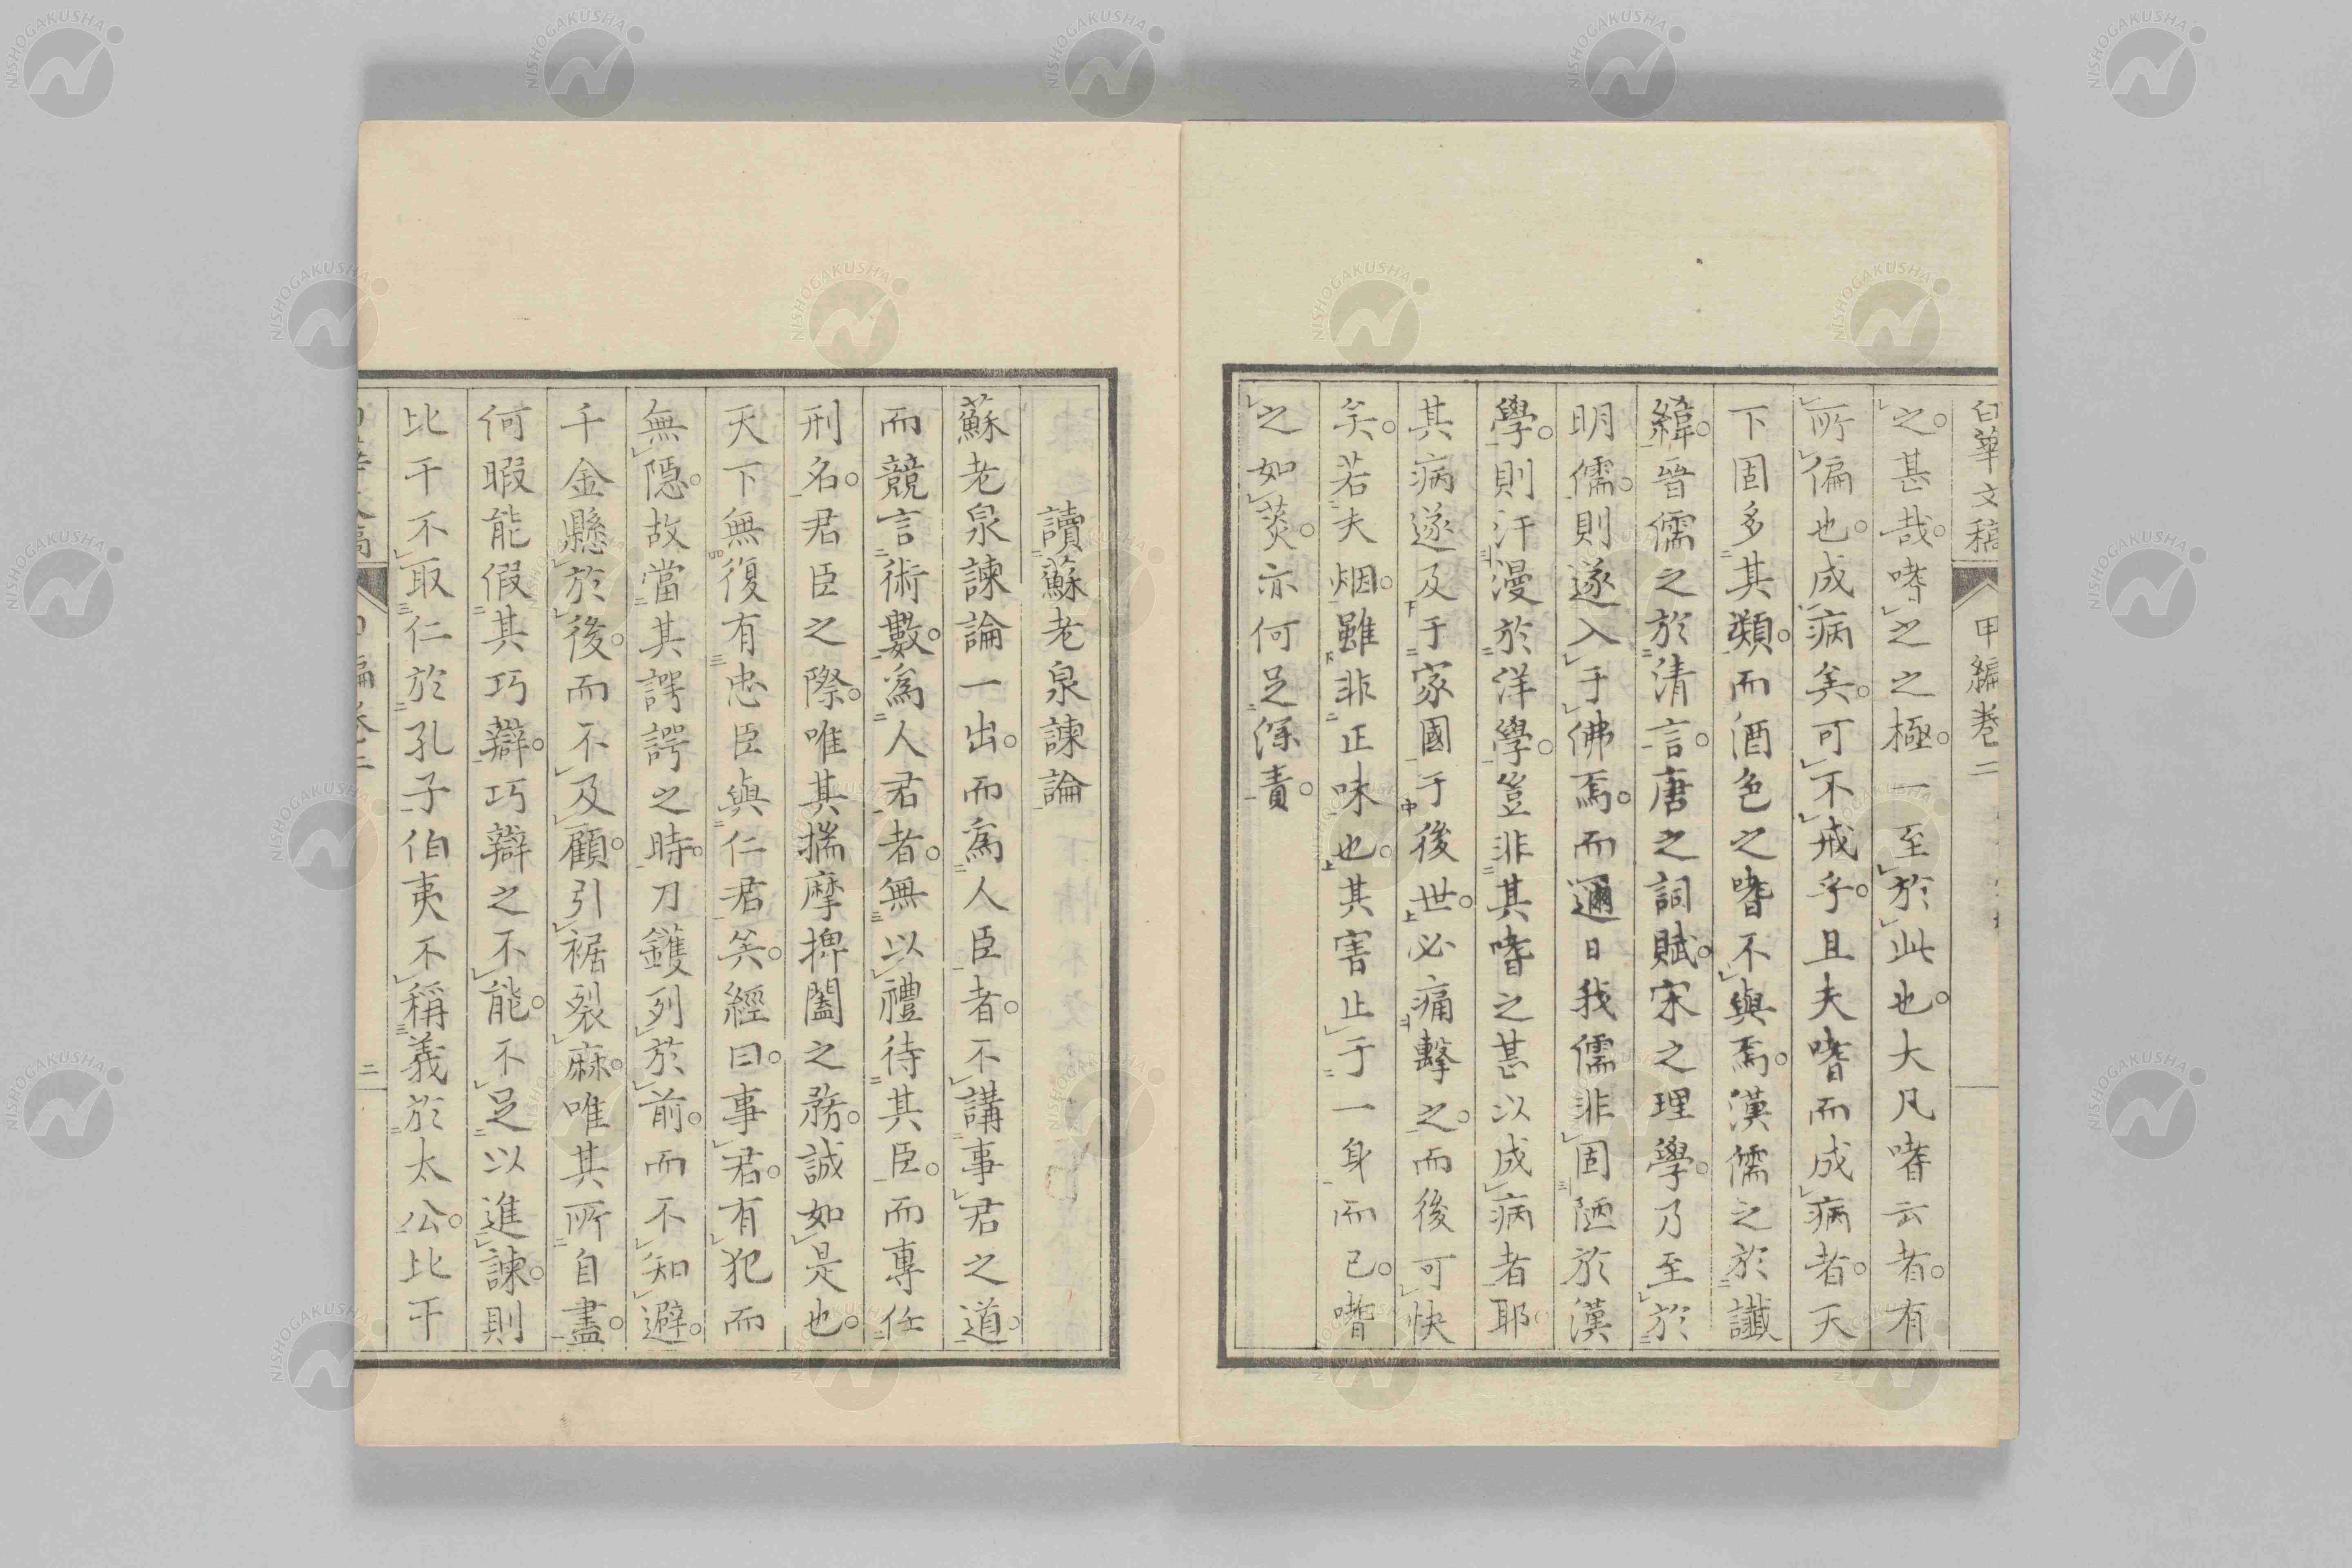 白華文稿 甲編卷二
之。甚哉。嗜之之極。一至於此也。大凡嗜云者。有
所偏也。成病矣。可不戒乎。且夫嗜而成病者。天
下固多其類。而酒色之嗜不與焉。漢儒之於讖
緯。晉儒之於清言。唐之詞賦。宋之理學。乃至於
明儒。則遂入于佛焉。而邇日我儒非固陋於漢
學。則汗漫於洋學。豈非其嗜之甚以成病者耶。
其病遂及于家國于後世。必痛擊之。而後可快
矣。若夫烟。雖非正味也。其害止于一身而已。嗜
之如茭。亦何足深責。
讀蘇老泉諫論
蘇老泉諫論一出。而為人臣者。不講事君之道。
而競言術數。為人君者。無以禮待其臣。而專任
刑名。君臣之際。唯其揣摩捭闔之務。誠如是也。
天下無復有忠臣與仁君矣。經曰。事君。有犯而
無隱。故當其諤諤之時。刀鑊列於前。而不知避。
千金懸於後。而不及顧。引裾裂麻。唯其所自盡。
何暇能假其巧辯。巧辯之不能。不足以進諫。則
比干不取仁於孔子伯夷不稱義於太公。比干
二
NISHOGAKUSHA